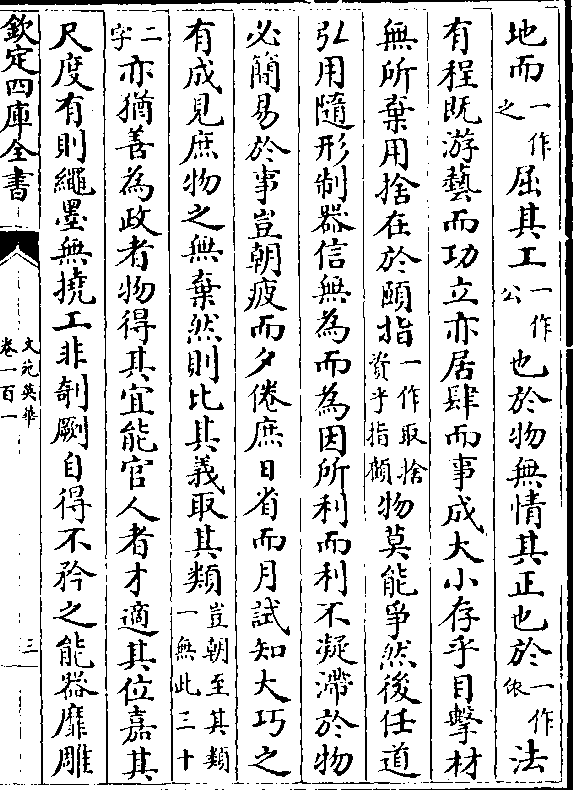 地而一作之屈其工一作公也於物無情其正也於一作依法
有程既游藝而功立亦居肆而事成大小存乎目擊材
無所棄用捨在於頤指一作取捨資乎指顧物莫能爭然後任道
弘用隨形制器信無為而為因所利而利不凝滯於物
必簡易於事豈朝疲而夕倦庶日省而月試知大巧之
有成見庶物之無棄然則比其義取其類豈朝至其類一無此三十
二字亦猶善為政者物得其宜能官人者才適其位嘉其
尺度有則繩墨無撓工非剞劂自得不矜之能器靡雕
欽定四庫全書
文苑英華
卷一百一
三